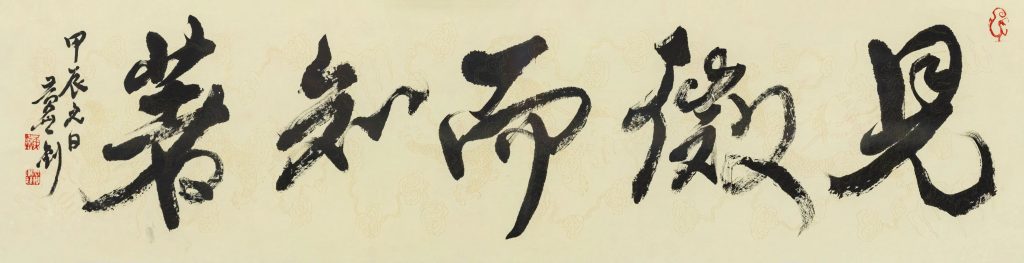 見微而知著
甲辰元日